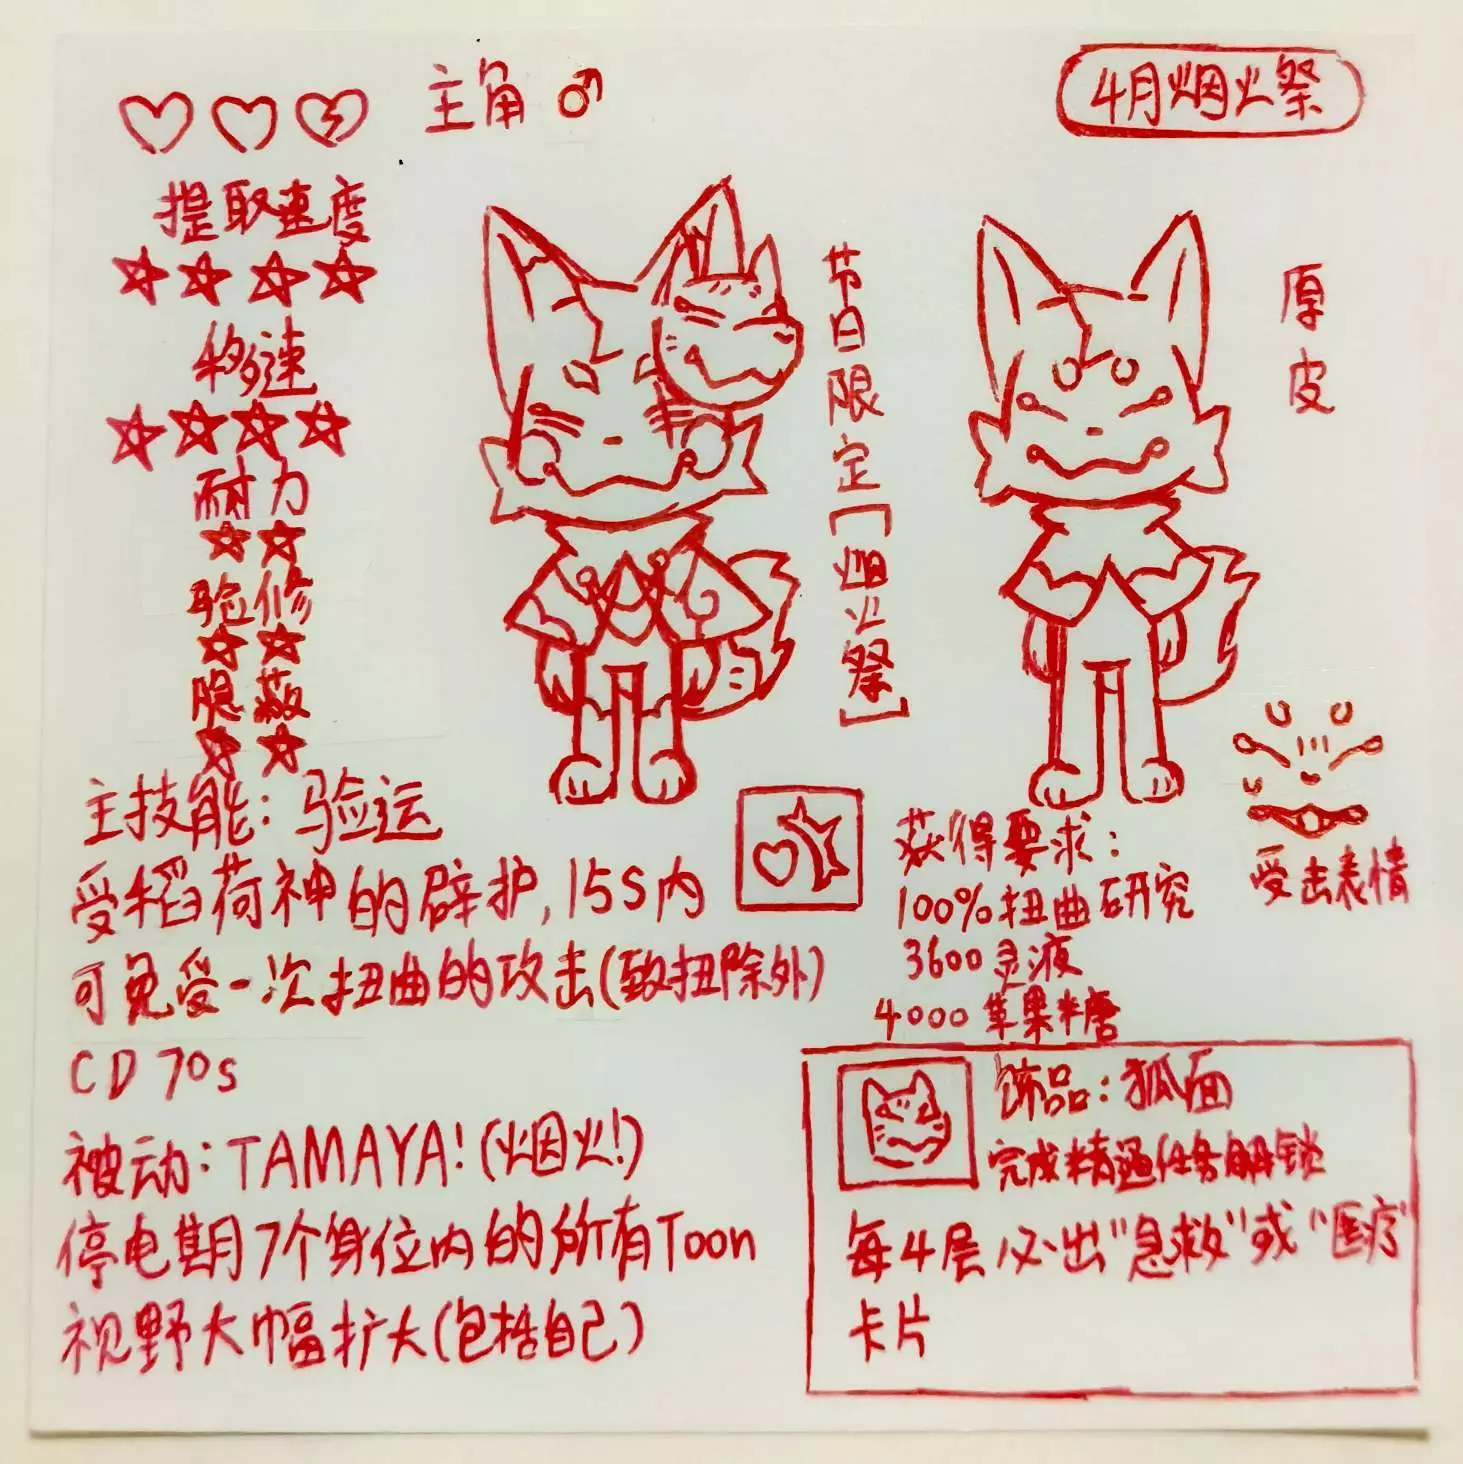 主角 ♂
4月烟火祭
提取速度
移速
耐力
验修
隐蔽
节日限定[烟火祭]
原皮
主技能：验运
受稻荷神的辟护，15S内
可免受一次扭曲的攻击(致扭除外)
CD 70s
被动：TAMAYA！(烟火！)
停电期7个身位内的所有Toon
视野大幅扩大(包括自己)
受击表情
获得要求：
100%扭曲研究
3600灵液
4000苹果糖
饰品：狐面
完成精通任务解锁
每4层必出"急救"或"医疗"
卡片